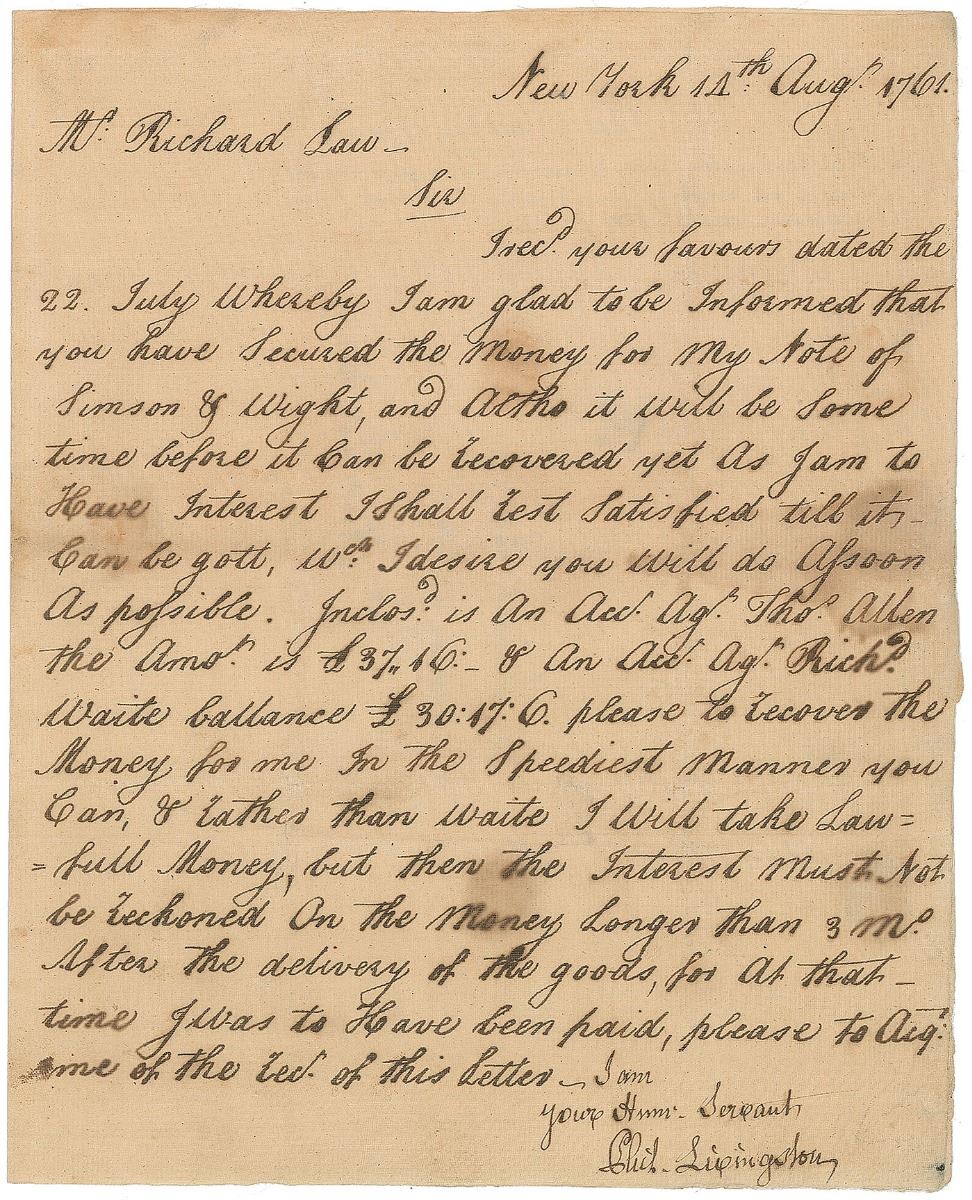 New York 14th Augt. 1761.
Mr. Richard Law –
Sir
I recd. your favours dated the
22. July Whereby I am glad to be Informed that
you have Secured the Money for My Note of
Simson & Wight, and Altho it will be Some
time before it Can be recovered yet As I am to
Have Interest I Shall rest Satisfied till it –
Can be gott, Wch. I desire you Will do Assoon
As possible. Inclosd. is An Acct. Agt. Thos. Allen
the Amot. is £37,,16:– & An Acct. Agt. Richd.
Waite ballance £30:17:6. please to recover the
Money for me In the Speediest Manner you
Can, & rather than Waite I Will take Law=
=full Money, but then the Interest Must Not
be reckoned On the Money Longer than 3 mo.
After the delivery of the goods, for At that –
time I was to Have been paid, please to Acq.
me of the rect. of this Letter – I am
your Humr. Servant,
Phil. Livingston